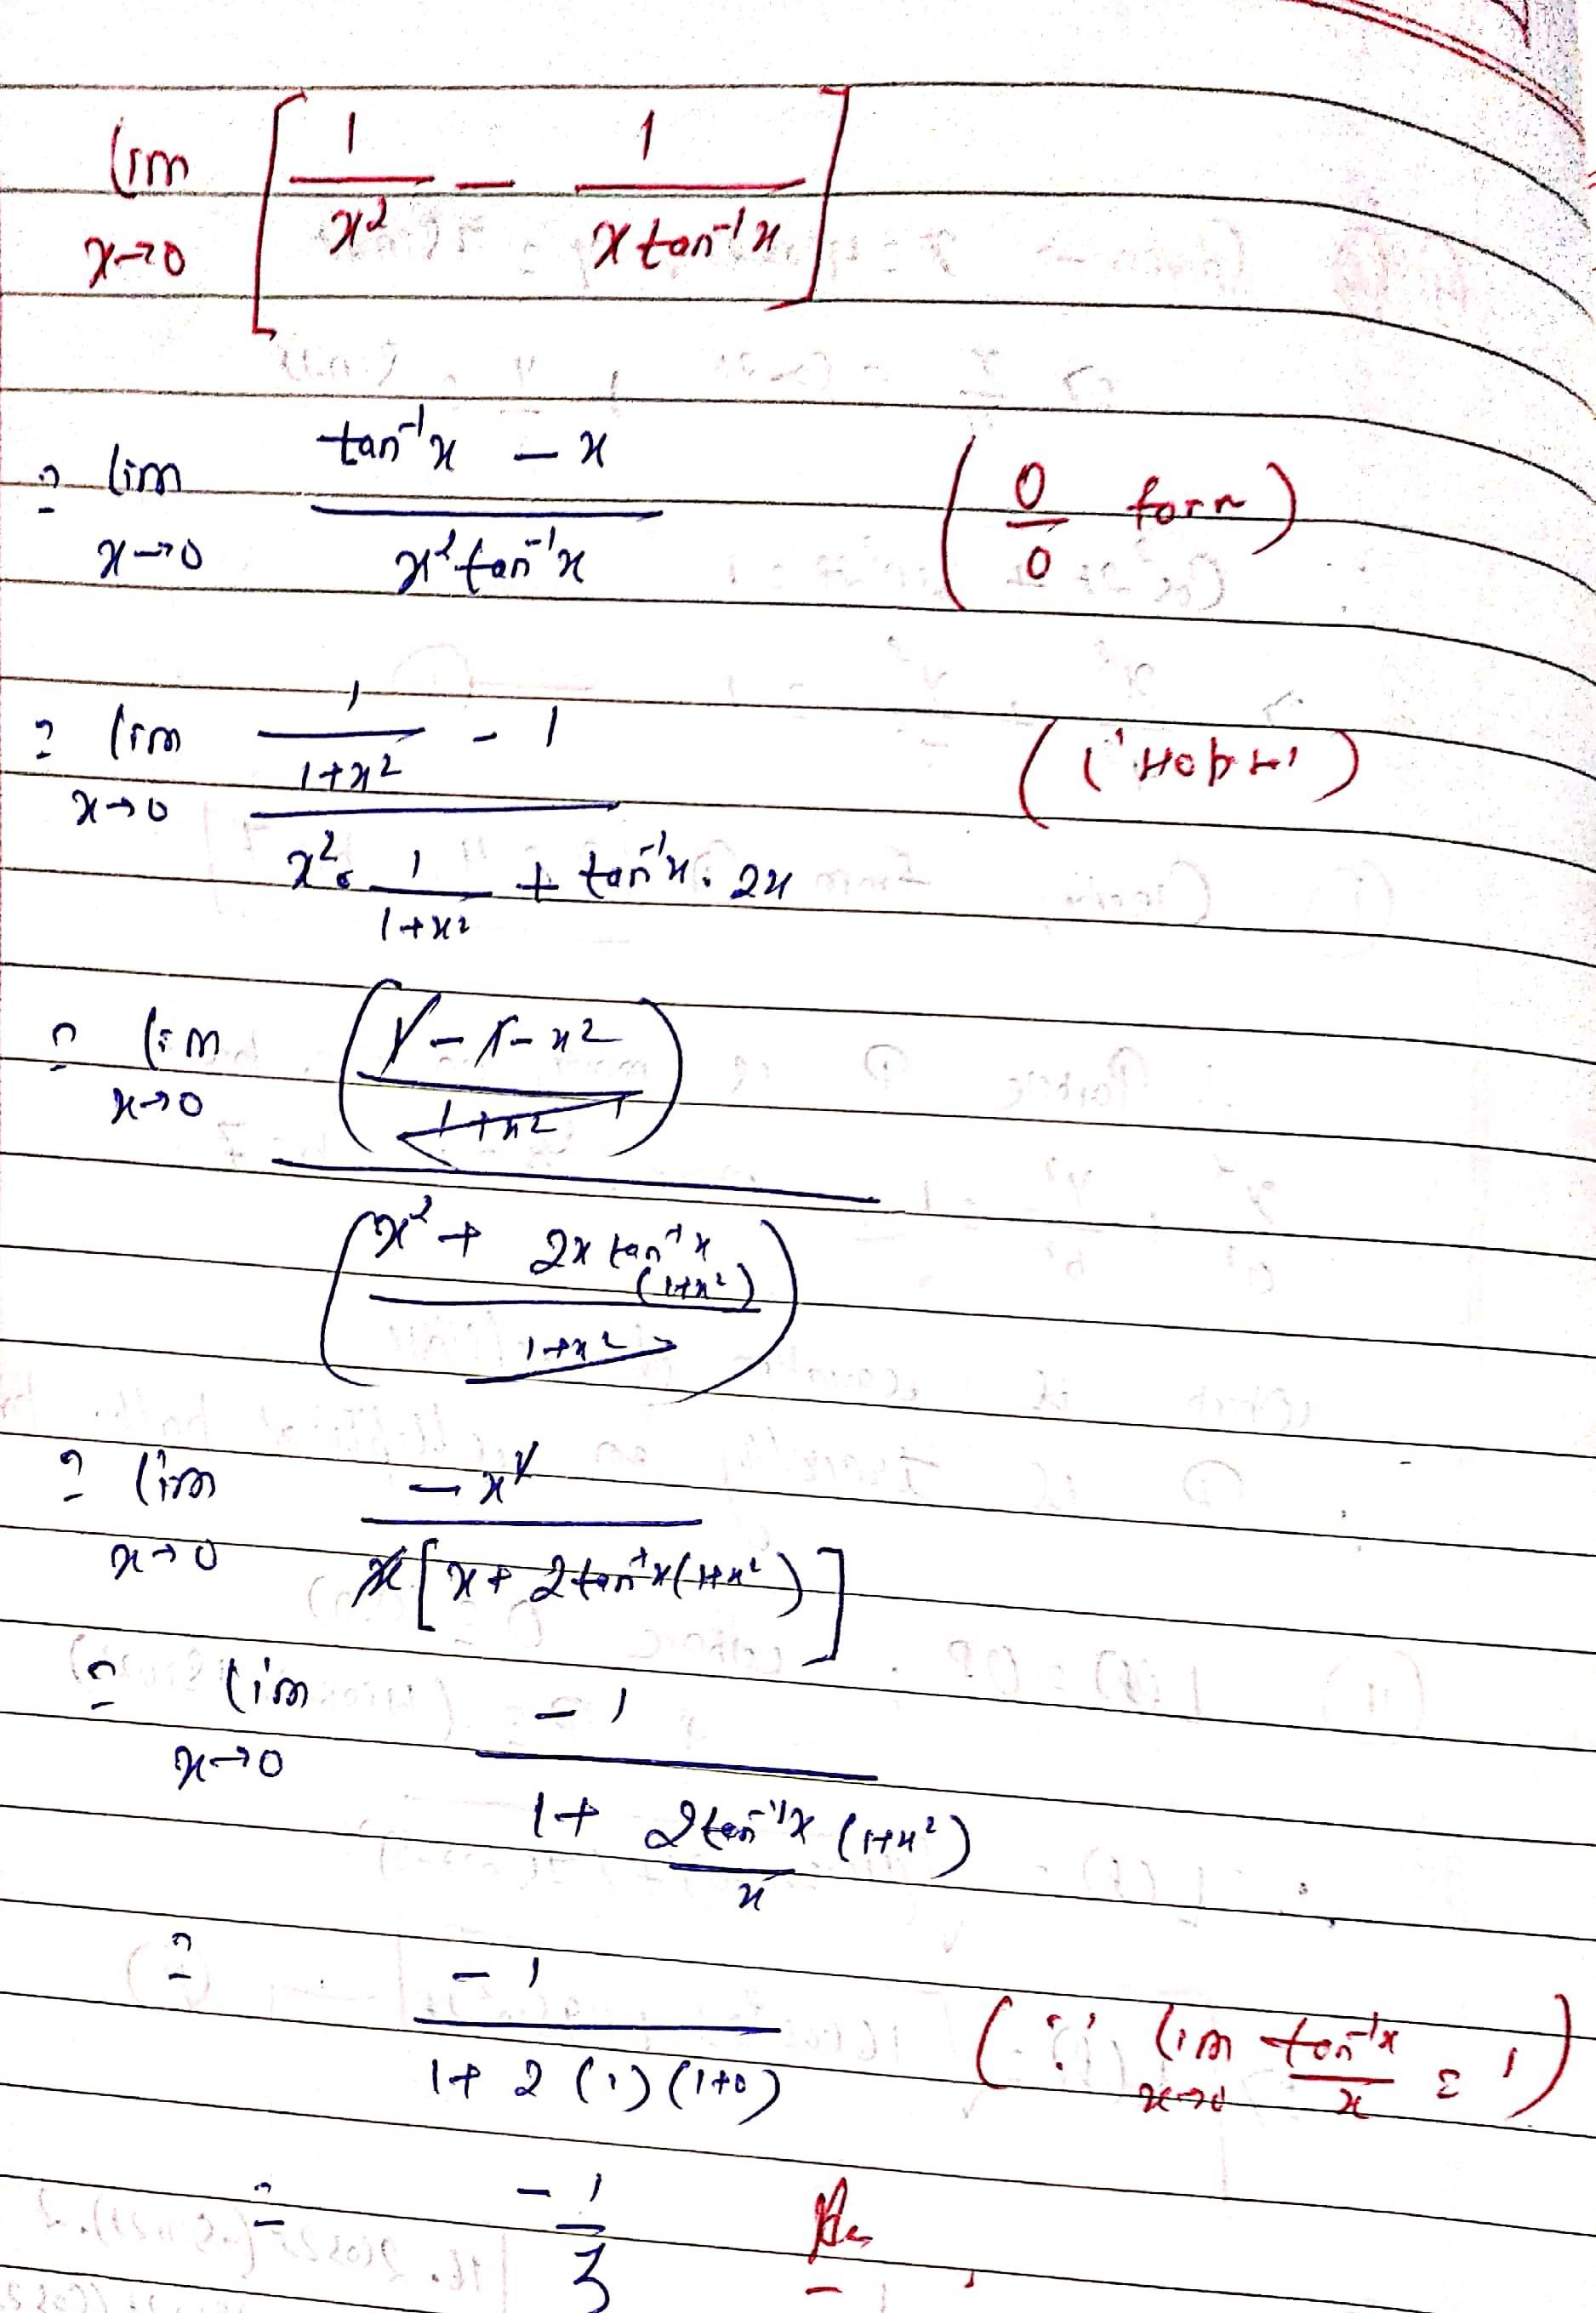 lim x→0 [ 1/x² - 1/(x tan⁻¹x) ]
= lim x→0 (tan⁻¹x - x)/(x² tan⁻¹x) (0/0 form)
= lim x→0 (1/(1+x²) - 1)/(x² · 1/(1+x²) + tan⁻¹x · 2x)
= lim x→0 ((1 - 1 - x²)/(1+x²))/((x² + 2x tan⁻¹x (1+x²))/(1+x²))
= lim x→0 -x²/(x[x + 2tan⁻¹x(1+x²)])
= lim x→0 -1/(1 + (2tan⁻¹x/x)(1+x²))
= -1/(1 + 2(1)(1+0)) (∵ lim x→0 tan⁻¹x/x = 1)
= -1/3